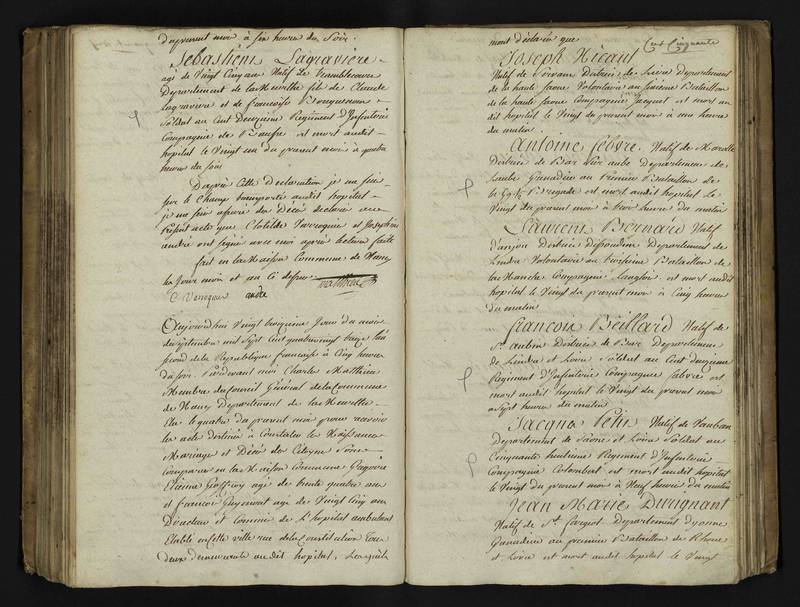 du present mois à six heures du Soir.
Sebastien Lagraviere
agé de Vingt Cinq ans Natif de
Departement de la Meurthe fils de Claude
Lagraviere et de francoise
Soldat au Cent Deuxieme Regiment d'Infanterie
Compagnie de est mort audit
hopital le Vingt un du present mois à quatre
heures du soir
D'après Cette Declaration je me suis
sur le Champ transporté audit hopital
je me suis assuré du Décé declaré au
présent acte que Clotilde et Josephine
andré ont signé avec moi après lecture faite
fait en la Maison Commune de Nancy
les Jour mois et an Ci dessus Matthieu
C andré
Aujourdhui Vingt troisieme Jour du mois
de septembre mil Sept Cent quatrevingt treize l'an
second de la Republique francaise à Cinq heures
du soir. Pardevant moi Charles Matthieu
Membre du Conseil Général de la Commune
de Nancy Departement de la Meurthe
Elu le quatre du present mois pour recevoir
les actes destinés à Constater les Naissances
Mariages et Décés des Citoyens Sont
Comparus en la Maison Commune
Etienne Geoffroy agé de trente quatre ans
et francois agé de Vingt Cinq ans
Directeur et Commis de L'hopital ambulant
Etabli en cette ville rue de la Constitution tous
deux demeurants audit hopital, Lesquels
Cent Cinquante
mont déclarés que
Joseph Nicant
Natif de District de Departement
de la haute saone Volontaire au Sixieme Bataillon
de la haute saone Compagnie Jacquet est mort au
dit hopital le Vingt du present mois à une heure
du matin.
Antoine febvre. Natif de
District de Bar sur aube Departement de
Laube Grenadier au Premier Bataillon de
la Brigade est mort audit hopital Le
Vingt du present mois à trois heures du matin
Laurent Bernard Natif
d'anjou District Departement de
Lindre Volontaire au Troisieme Bataillon de
la Manche Compagnie Langlois est mort audit
hopital le Vingt du present mois à Cinq heures
du matin
francois Beillard Natif de
St. aubin District de Departement
de Lindre et Loire Soldat au Cent deuxieme
Regiment d'Infanterie Compagnie fabvre est
mort audit hopital le Vingt du present mois
a Sept heures du matin
Jacque Petit Natif de
Departement de Saone et Loire Soldat au
Cinquante huitieme Regiment d'Infanterie
Compagnie Colombet est mort audit hopital
le Vingt du present mois à Neuf heures du matin
Jean Marie Durignant
Natif de St. fargeot Departement dyonne
Grenadier au premier Bataillon de Rhone
et Loire est mort audit hopital le Vingt